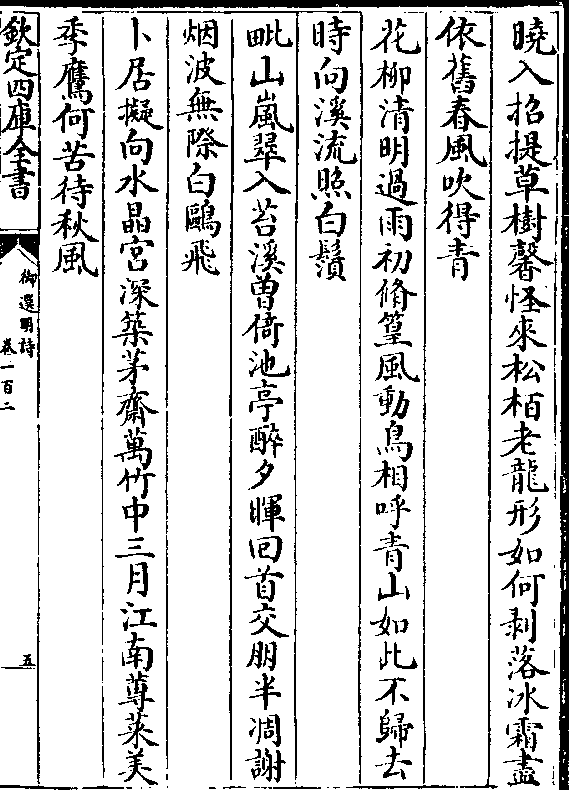 曉入招提草樹馨怪來松栢老龍形如何剥落冰霜盡
依舊春風吹得青
花柳清明過雨初脩篁風動鳥相呼青山如此不歸去
時向溪流照白鬚
毗山嵐翠入苕溪曽倚池亭醉夕暉回首交朋半凋謝
烟波無際白鷗飛
卜居擬向水晶宫深築茅齋萬竹中三月江南蓴菜美
季鷹何苦待秋風
欽定四庫全書
御選明詩
卷一百二
五